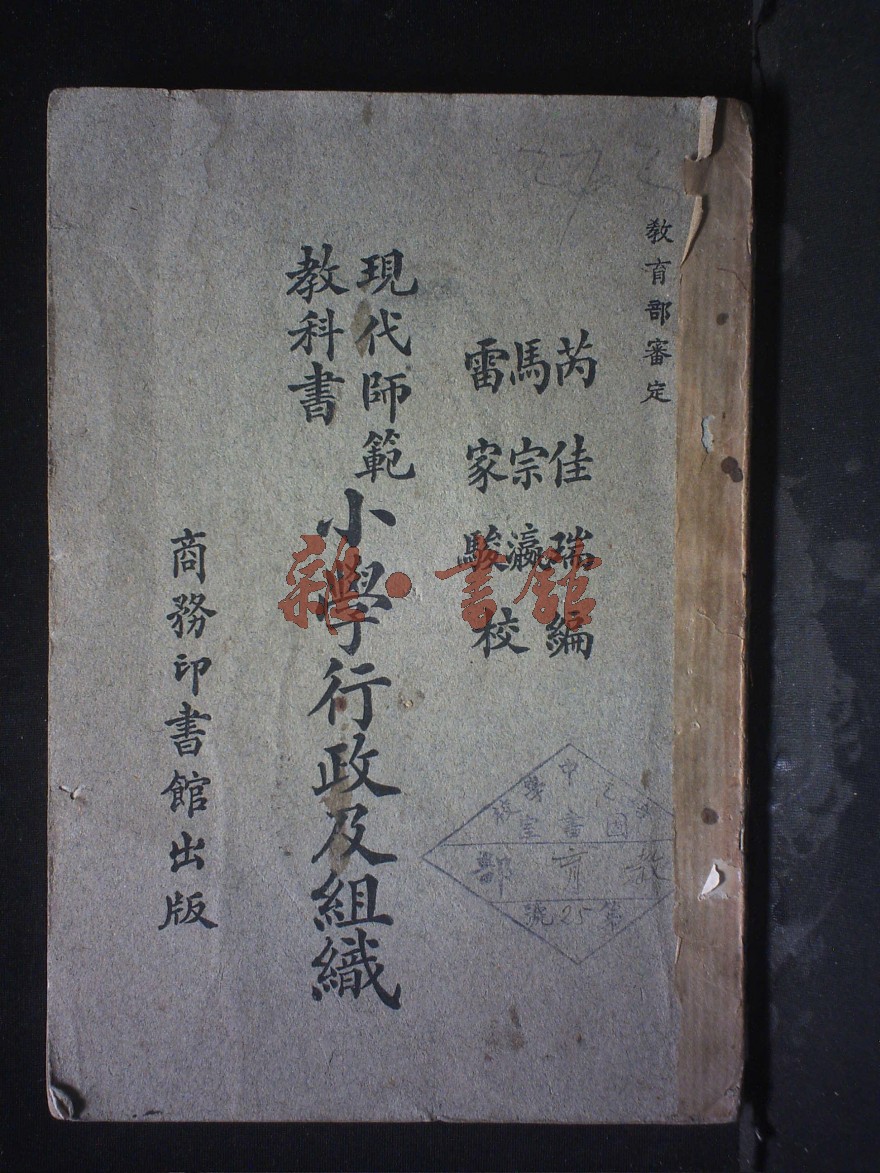 教育部審定
芮佳瑞編
馬宗瀛
雷家駿校
現代師範
教科書
小學行政及組織
商務印書館出版
雜·書館
教育部
第25號